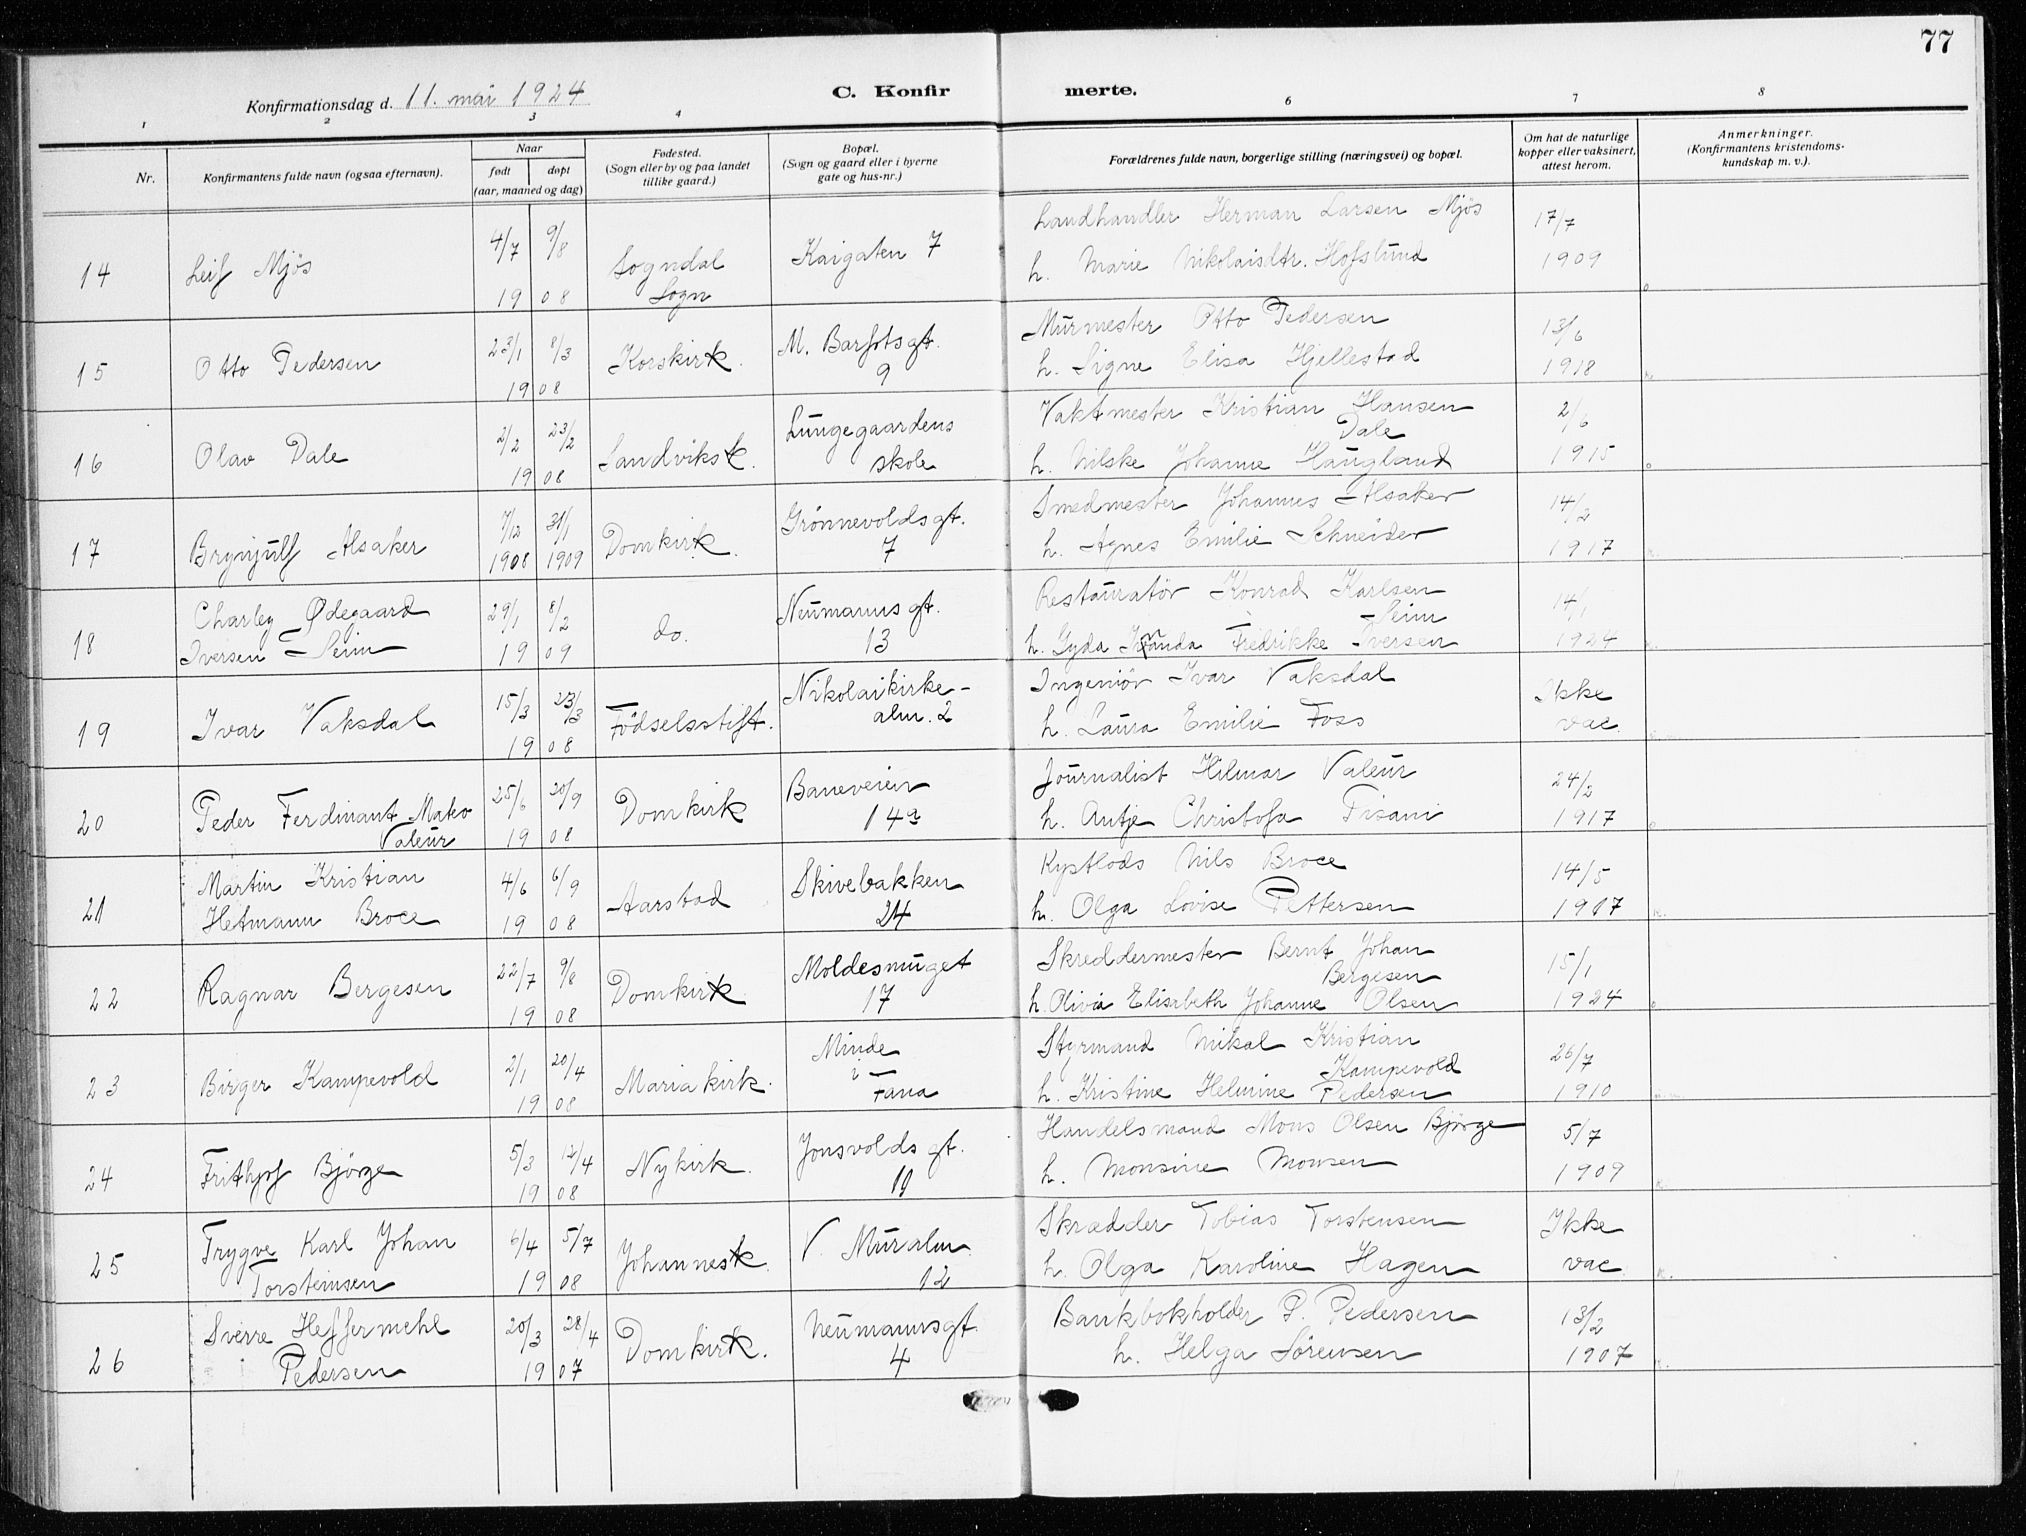 77
Konfirmationsdag d. 11. mai 1924
C. Konfirmerte.
1 2 3 4 6 7 8
Nr.
Konfirmantens fulde navn (ogsaa efternavn).
Naar
født døpt
(aar, maaned og dag)
Fødested.
(Sogn eller by og paa landet
tillike gaard.)
Bopæl.
(Sogn og gaard eller i byerne
gate og hus-nr.)
Forældrenes fulde navn, borgerlige stilling (næringsvei) og bopæl.
Om hat de naturlige
kopper eller vaksinert,
attest herom.
Anmerkninger.
(Konfirmantens kristendoms-
kundskap m. v.).
14 Leif Mjös 4/7 9/8 1908 Sogndal Sogn Kaigaten 7
Landhandler Herman Larsen Mjös 17/7
h. Marie Nikolaisdtr. Hofslund 1909
15 Otto Pedersen 23/1 8/3 1908 Korskirk. M. Barfotsgt. 9
Murmester Otto Pedersen 13/6
h. Signe Elisa Hjellestad 1918
16 Olav Dale 2/2 23/2 1908 Sandviksk. Lungegaardens skole
Vaktmester Kristian Hansen Dale 2/6
h. Nilske Johanne Haugland 1915
17 Brynjulf Alsaker 7/12 1908 31/1 1909 Domkirk. Grönnevoldsgt. 7
Smedmester Johannes Alsaker 14/2
h. Agnes Emilie Schneider 1917
18 Charley Ødegaard Iversen Seim 29/1 8/2 1909 do. Neumannsgt. 13
Restauratör Konrad Karlsen Seim 14/1
h. Gyda Fredrikke Iversen 1924
19 Ivar Vaksdal 15/3 23/3 1908 Födselsstift. Nikolaikirke-alm. 2
Ingeniör Ivar Vaksdal Ikke
h. Laura Emilie Foss vac.
20 Peder Ferdinant Mateo Valeur 25/6 20/9 1908 Domkirk Baneveien 14a
Journalist Hilmar Valeur 24/2
h. Antje Christofa Pisani 1917
21 Martin Kristian Hetmann Broce 4/6 6/9 1908 Aarstad Skivebakken 24
Kystlods Nils Broce 14/5
h. Olga Lovise Pettersen 1917
22 Ragnar Bergesen 22/7 9/8 1908 Domkirk Moldesmuget 17
Skreddermester Bernt Johan Bergesen 15/1
h. Olivia Elisabeth Johanne Olsen 1924
23 Birger Kampevold 2/1 20/4 1908 Mariakirk. Minde i Fana
Styrmand Mikal Kristian Kampevold 26/7
h. Kristine Helmine Pedersen 1910
24 Frithjof Björge 5/3 12/4 1908 Nykirk. Jonsvoldsgt. 19
Handelsmand Mons Olsen Björge 5/7
h. Monsine Monsen 1909
25 Trygve Karl Johan Torsteinsen 6/4 5/7 1908 Johannesk. V Muralm. 12
Skrædder Tobias Torstensen Ikke
h. Olga Karoline Hagen vac.
26 Sverre Heffermehl Pedersen 20/3 28/4 1907 Domkirk. Neumannsgt. 4
Bankbokholder P. Pedersen 13/2
h. Helga Sörensen 1907